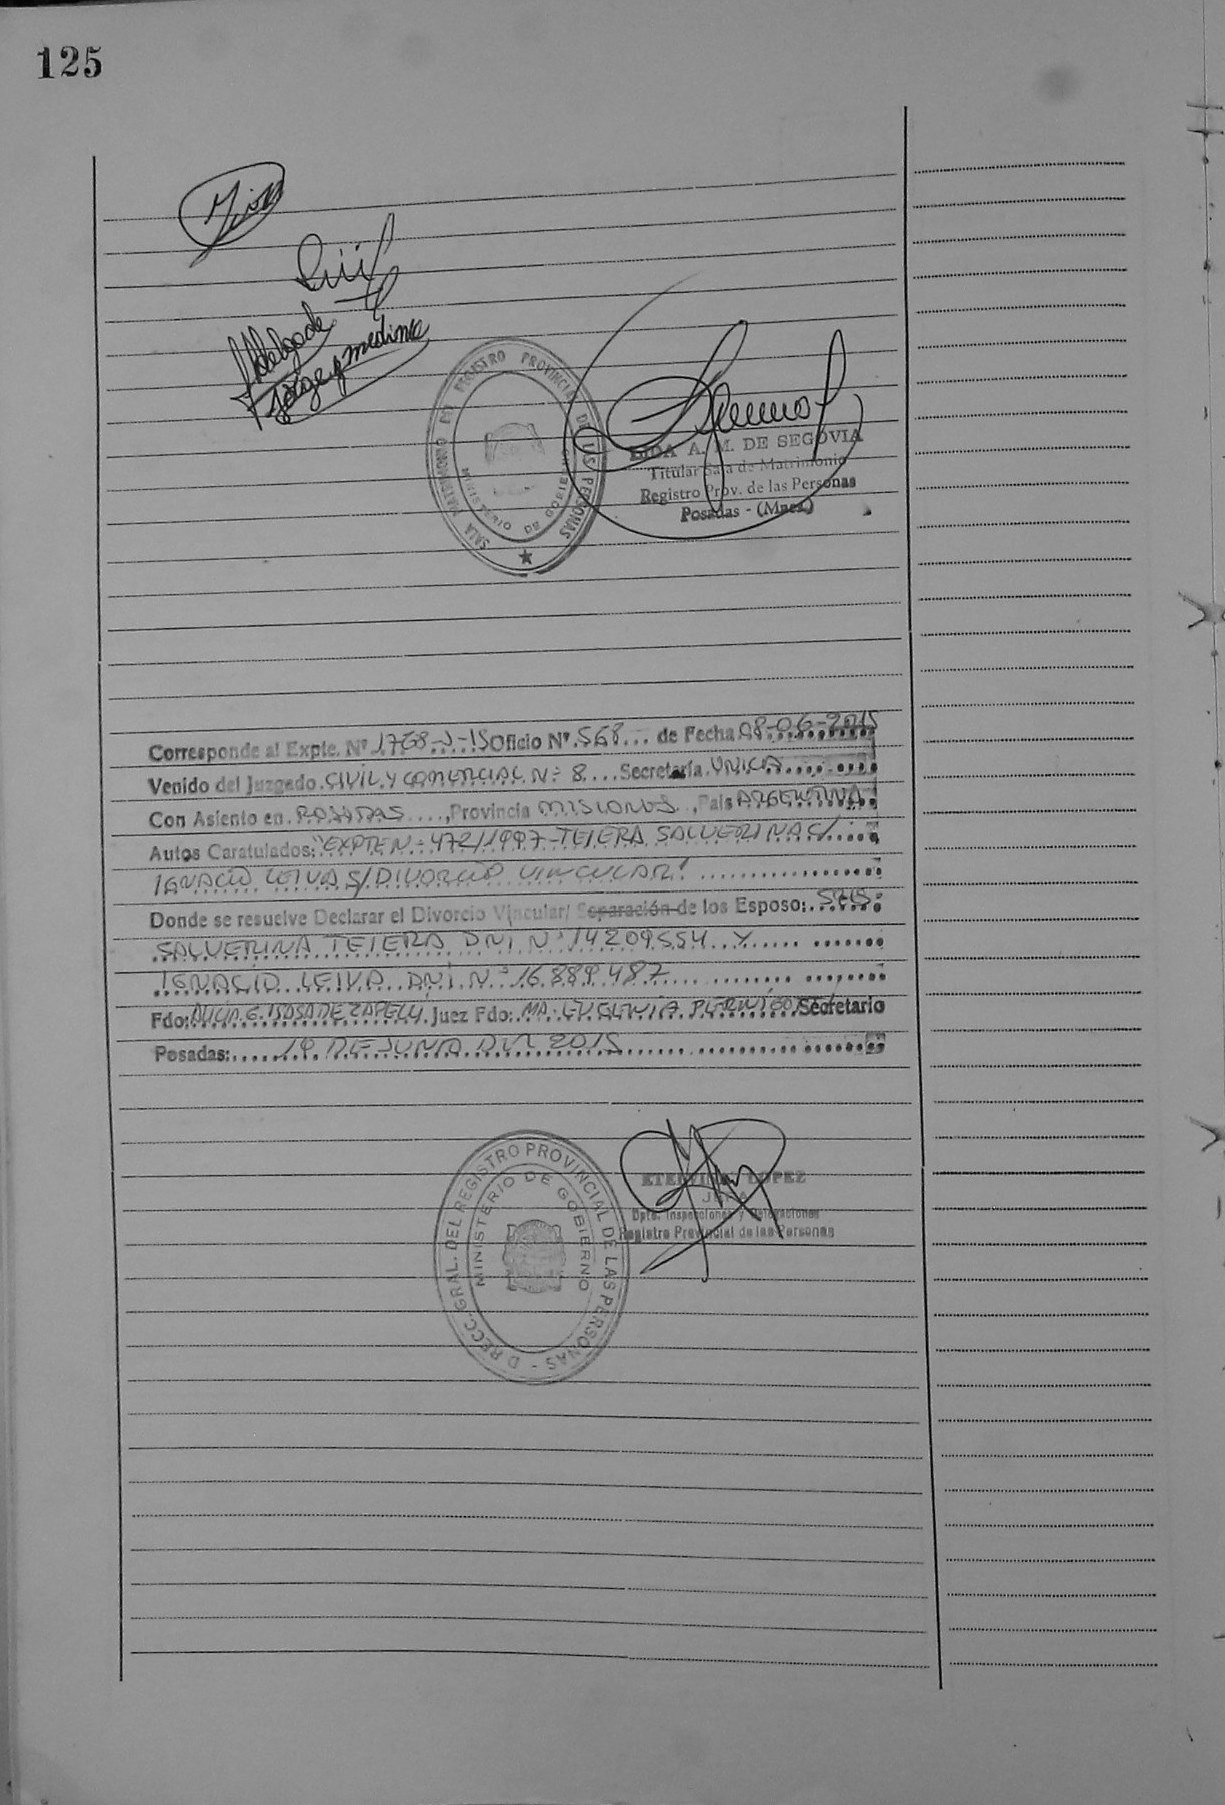 125
Delgado
Jorge y medina
SALA MATRIMONIO REGISTRO PROVINCIAL DE LAS PERSONAS
MINISTERIO DE GOBIERNO
A. M. DE SEGOVIA
Titular Sala de Matrimonio
Registro Prov. de las Personas
Posadas - (Mnes.)
Corresponde al Expte. Nº 1768-J-15 Oficio Nº 568 de Fecha 08-06-2015
Venido del Juzgado CIVIL Y COMERCIAL Nº 8 Secretaría UNICA
Con Asiento en POSADAS, Provincia MISIONES, País ARGENTINA
Autos Caratulados: "EXPTE Nº 472/1997-TEIERA SALVERINA C/
IGNACIO LEIVA S/ DIVORCIO VINCULAR"
Donde se resuelve Declarar el Divorcio Vincular/ Separación de los Esposo: SRES:
SALVERINA TEIERA DNI Nº 14209554 Y
IGNACIO LEIVA DNI Nº 16.889.487
Fdo: Juez Fdo: MA. EUGENIA Secretario
Posadas: 19 DE JUNIO DEL 2015
DIRECC. GRAL. DEL REGISTRO PROVINCIAL DE LAS PERSONAS -
MINISTERIO DE GOBIERNO
LOPEZ
Dpto. Inspecciones y Delegaciones
Registro Provincial de las Personas